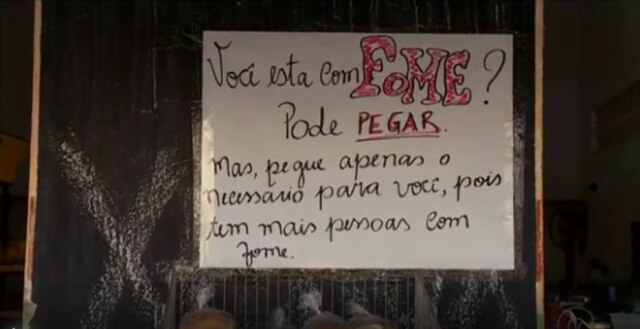 Você esta com FOME?
Pode PEGAR.
Mas, pegue apenas o
necessário para você, pois
tem mais pessoas com
fome.